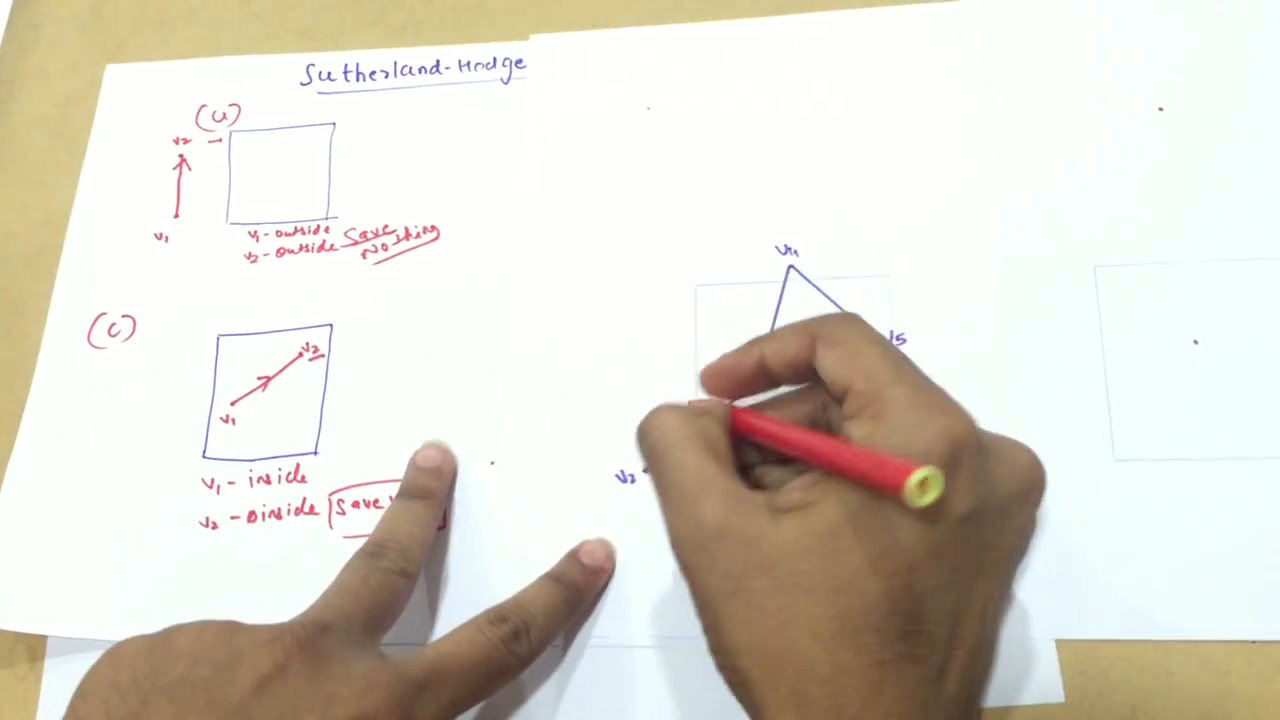 Sutherland-Hodge
(a)
v2
v1
v1-outside
v2-outside Save Nothing
(c)
v2
v1
v1- inside
v2 -oinside Save
v5
v2